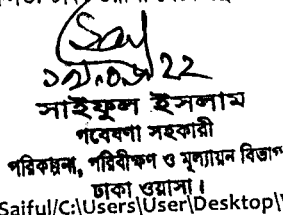 ১৯.০৬.22
সাইফুল ইসলাম
গবেষণা সহকারী
পরিকল্পনা, পরিবীক্ষণ ও মূল্যায়ন বিভাগ
ঢাকা ওয়াসা।
Saiful/C:\Users\User\Desktop\